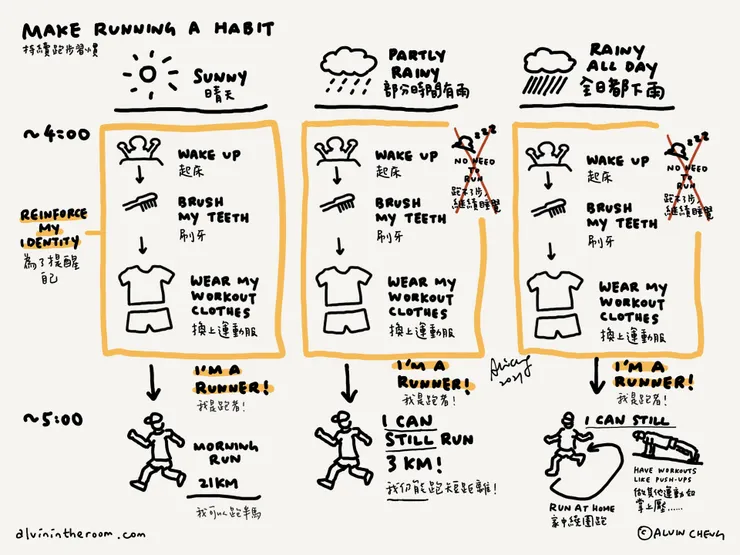 MAKE RUNNING A HABIT
持續跑步習慣
SUNNY
晴天
PARTLY
RAINY
部分時間有雨
RAINY
ALL DAY
全日都下雨
~4:00
WAKE UP
起床
BRUSH
MY TEETH
刷牙
WEAR MY
WORKOUT
CLOTHES
換上運動服
WAKE UP
起床
BRUSH
MY TEETH
刷牙
WEAR MY
WORKOUT
CLOTHES
換上運動服
zzz
NO NEED
TO
RUN
跑不了步,
繼續睡覺
WAKE UP
起床
BRUSH
MY TEETH
刷牙
WEAR MY
WORKOUT
CLOTHES
換上運動服
zzz
NO NEED
TO
RUN
跑不了步,
繼續睡覺
REINFORCE
MY
IDENTITY
為了提醒
自己
I'M A
RUNNER!
我是跑者!
I'M A
RUNNER!
我是跑者!
2021
I'M A
RUNNER!
我是跑者!
~5:00
MORNING
RUN
21KM
我可以跑半馬
I CAN
STILL RUN
3 KM!
我仍能跑短距離!
I CAN STILL
RUN AT HOME
家中繞圈跑
HAVE WORKOUTS
LIKE PUSH-UPS
做其他運動如
掌上壓......
alvinintheroom.com
© ALVIN CHENG